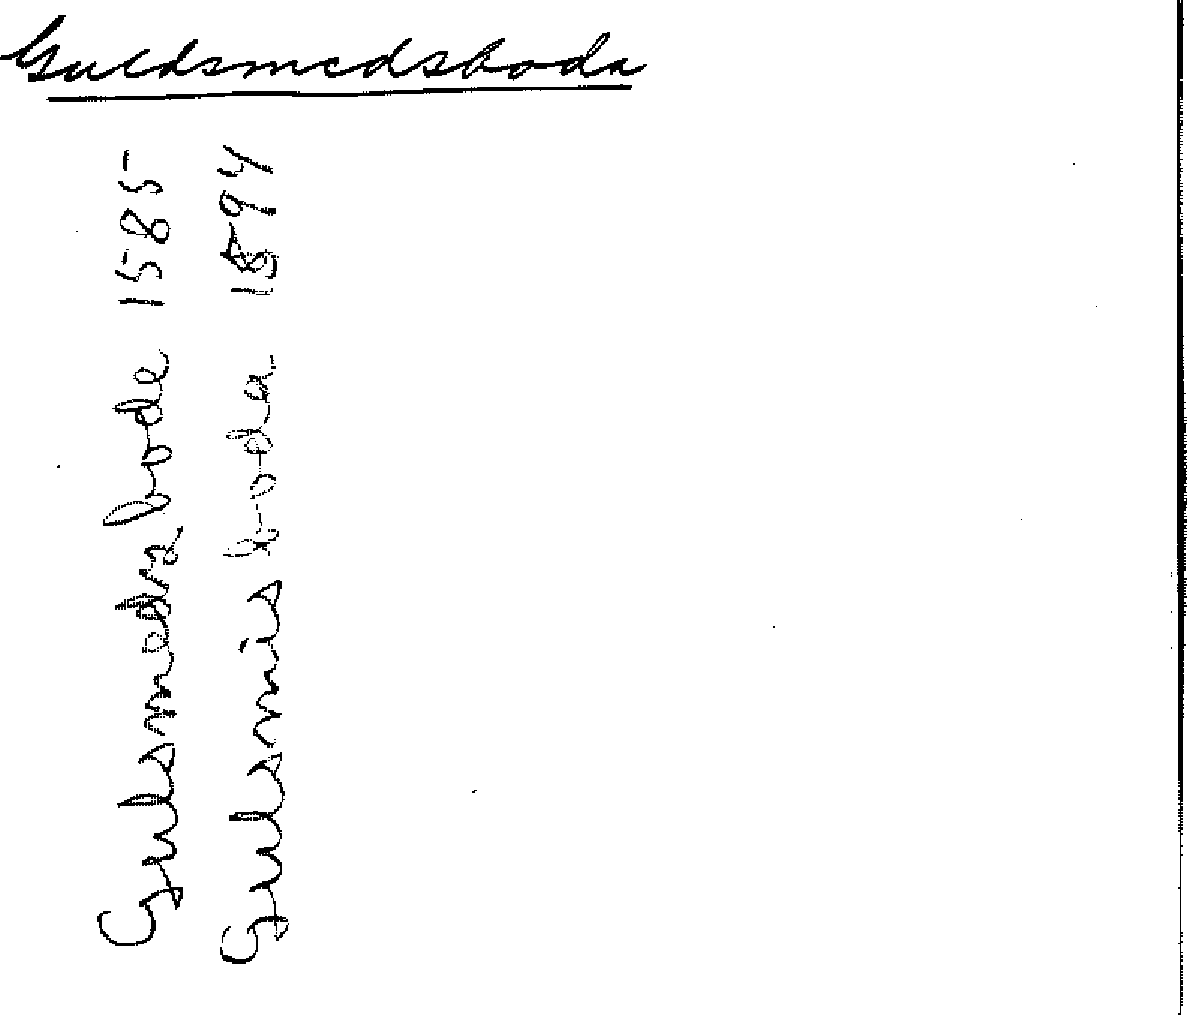 Guldsmedsboda
Gulsmedz bode 1585
Gulsmis boda 1594